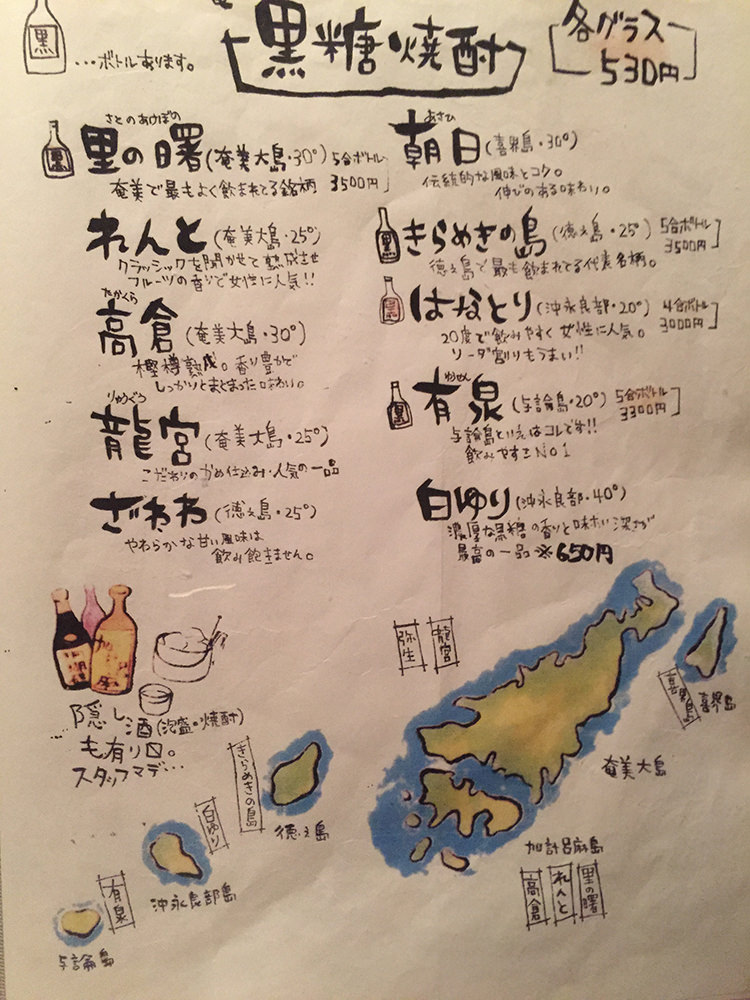 黒
…ボトルあります。
黒糖焼酎
各グラス
530円
さとのあけぼの
里の曙(奄美大島・30°)
5合ボトル
3500円
奄美で最もよく飲まれてる銘柄
れんと(奄美大島・25°)
クラッシックを聞かせて熟成させ
フルーツの香りで女性に人気!!
たかくら
高倉(奄美大島・30°)
樫樽熟成。香り豊かで
しっかりとまとまった味わい。
りゅうぐう
龍宮(奄美大島・25°)
こだわりのかめ仕込み・人気の一品
ざわわ(徳之島・25°)
やわらかな甘い風味は
飲み飽きません。
あさひ
朝日(喜界島・30°)
伝統的な風味とコク。
伸びのある味わい。
黒
きらめきの島(徳之島・25°)
5合ボトル
3500円
徳之島で最も飲まれてる代表名柄。
はなとり(沖永良部・20°)
4合ボトル
3000円
20度で飲みやすく女性に人気。
ソーダ割りもうまい!!
黒
ゆうせん
有泉(与論島・20°)
5合ボトル
3300円
与論島といえばコレです!!
飲みやすさNo1
白ゆり(沖永良部・40°)
濃厚な黒糖の香りと味わい深さが
最高の一品 ※650円
隠し酒(泡盛・焼酎)
も有り〼。
スタッフマデ…
弥生
龍宮
喜界島
喜界島
奄美大島
加計呂麻島
高倉
れんと
里の曙
きらめきの島
徳之島
白ゆり
沖永良部島
有泉
与論島